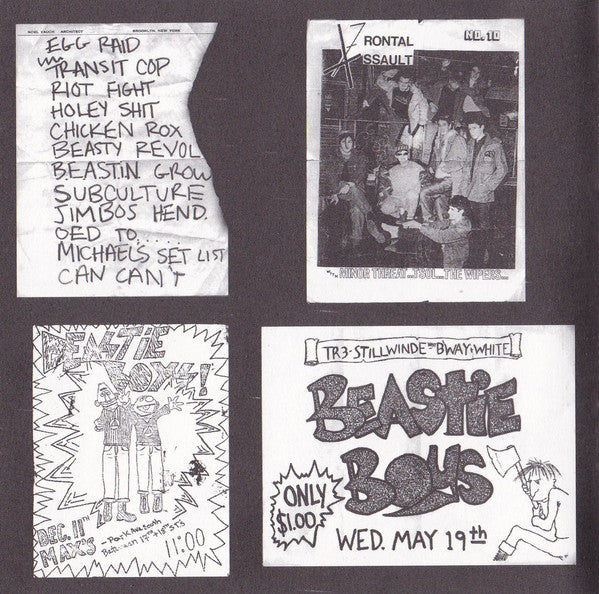 NOEL YAUCH ARCHITECT BROOKLYN, NEW YORK
EGG RAID
TRANSIT COP
RIOT FIGHT
HOLEY SHIT
CHICKEN ROX
BEASTY REVOL
BEASTIN GROW
SUBCULTURE
JIMBOS HEND.
OED TO.....
MICHAELS SET LIST
CAN CAN'T
NO.10
XRONTAL
ASSAULT
WITH MINOR THREAT...TSOL...THE WIPERS...
BEASTIE
BOYS!
DEC. 11TH
MAX'S
- Park Ave South
Between 17TH + 18TH STS
11:00
TR3 · STILLWENDE BWAY + WHITE
BEASTIE
BOYS
ONLY
$1.00
WED. MAY 19th